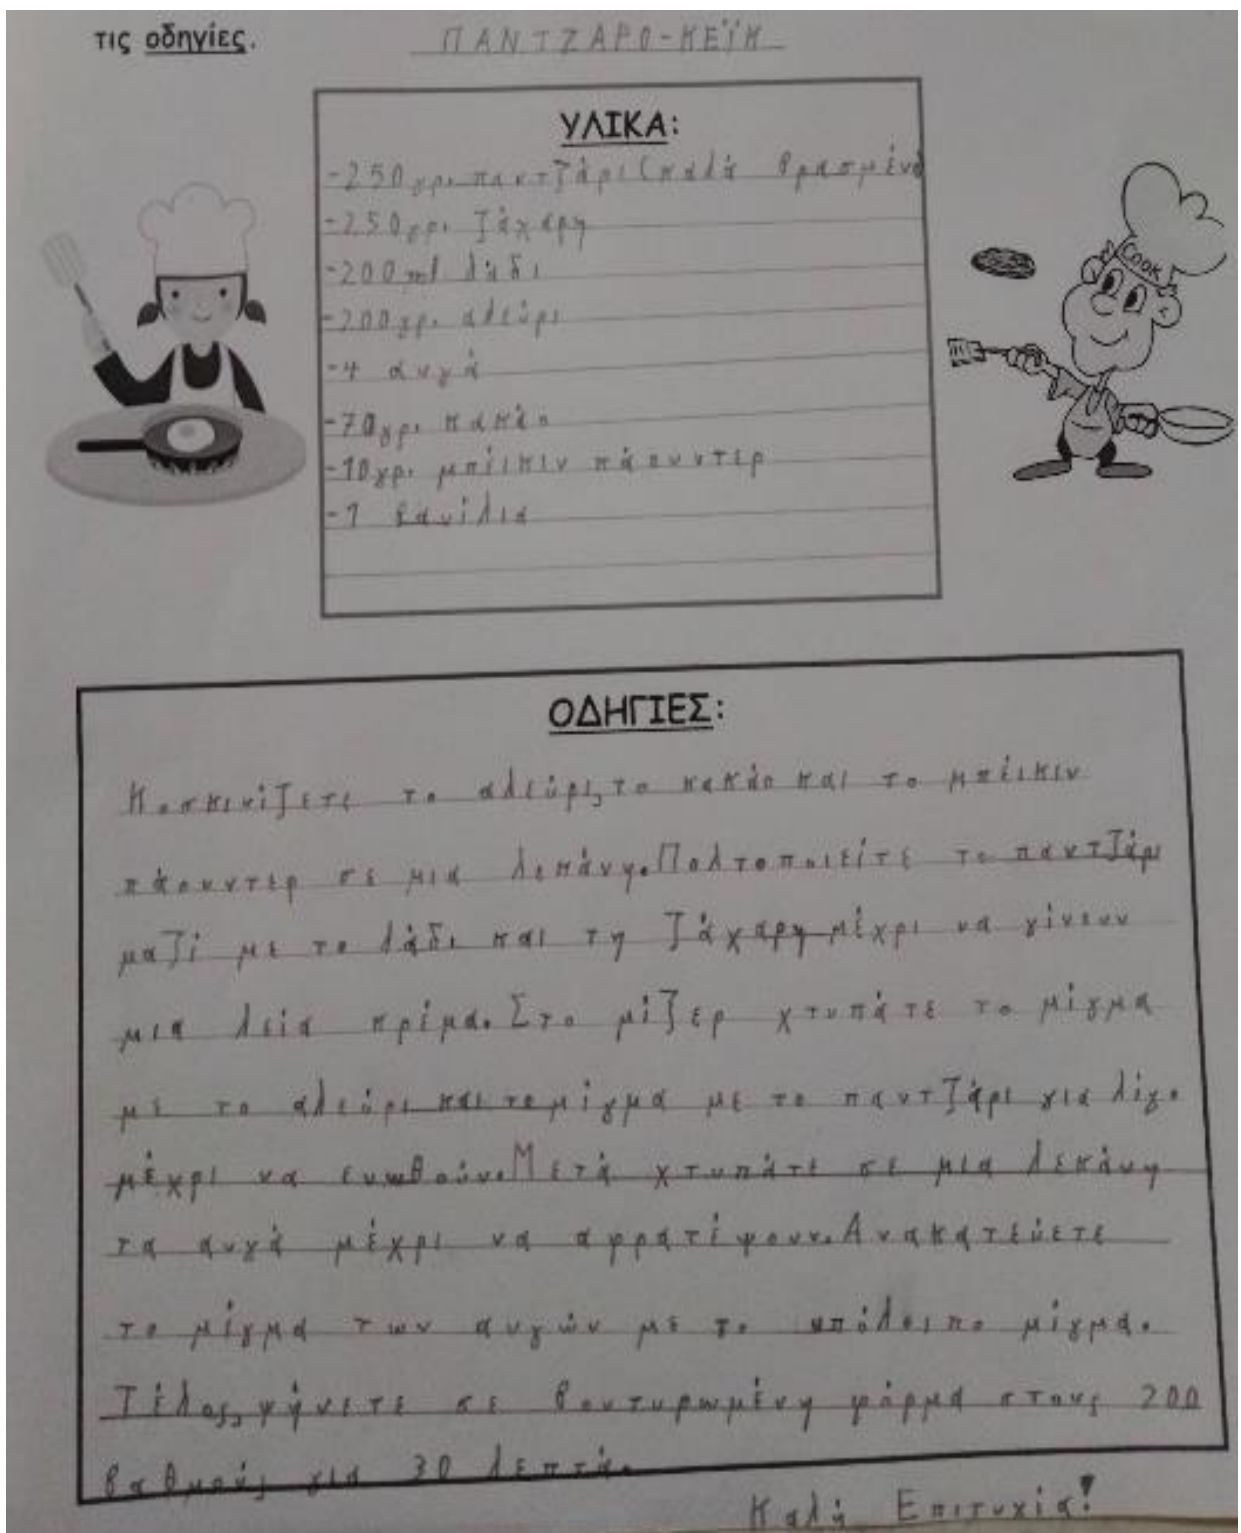 τις οδηγίες.
ΠΑΝΤΖΑΡΟ-ΚΕΪΚ
ΥΛΙΚΑ:
-250γρ. παντζάρι (καλά βρασμένο
-250γρ. ζάχαρη
-200ml λάδι
-200γρ. αλεύρι
-4 αυγά
-70γρ. κακάο
-10γρ. μπέικιν πάουντερ
-1 βανίλια
Cook
ΟΔΗΓΙΕΣ:
Κοσκινίζετε το αλεύρι, το κακάο και το μπέικιν
πάουντερ σε μια λεκάνη. Πολτοποιείτε το παντζάρι
μαζί με το λάδι και τη ζάχαρη μέχρι να γίνουν
μια λεία κρέμα. Στο μίξερ χτυπάτε το μίγμα
με το αλεύρι και το μίγμα με το παντζάρι για λίγο
μέχρι να ενωθούν. Μετά χτυπάτε σε μια λεκάνη
τα αυγά μέχρι να αφρατέψουν. Ανακατεύετε
το μίγμα των αυγών με το υπόλοιπο μίγμα.
Τέλος, ψήνετε σε βουτυρωμένη φόρμα στους 200
βαθμούς για 30 λεπτά.
Καλή Επιτυχία!